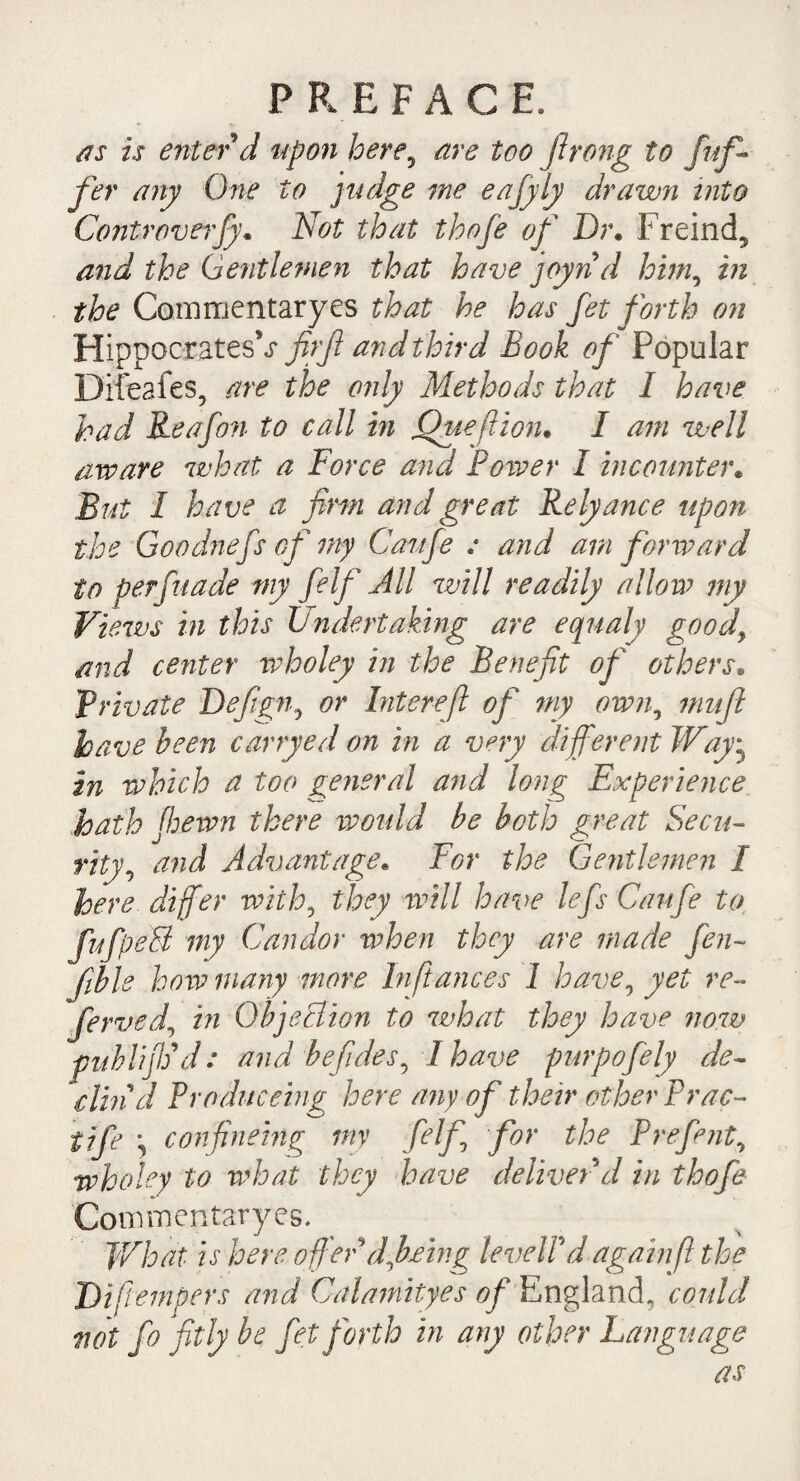 PREFACE.
as is enter'd upon here, are too ſtrong to ſuf-
fer any One to judge me eaſyly drawn into
Controverſy. Not that thoſe of Dr. Freind,
and the Gentlemen that have joyn'd him, in
the Commentaryes that he has ſet forth on
Hippocrates's firſt and third Book of Popular
Diſeaſes, are the only Methods that I have
had Reaſon to call in Queſtion. I am well
aware what a Force and Power I incounter.
But I have a firm and great Relyance upon
the Goodneſs of my Cauſe : and am forward
to perſuade my ſelf All will readily allow my
Views in this Undertaking are equaly good,
and center wholey in the Benefit of others.
Private Deſign, or Intereſt of my own, muſt
have been carryed on in a very different Way;
in which a too general and long Experience
hath ſhewn there would be both great Secu-
rity, and Advantage. For the Gentlemen I
here differ with, they will have leſs Cauſe to
ſuſpect my Candor when they are made ſen-
ſible how many more Inſtances I have, yet re-
ſerved, in Objection to what they have now
publiſh'd: and beſides, I have purpoſely de-
clin'd Produceing here any of their other Prac-
tiſe ; confineing my ſelf, for the Preſent,
wholey to what they have deliver'd in thoſe
Commentaryes.
What is here offer'd,being levell'd againſt the
Diſtempers and Calamityes of England, could
not ſo fitly be ſet forth in any other Language
as